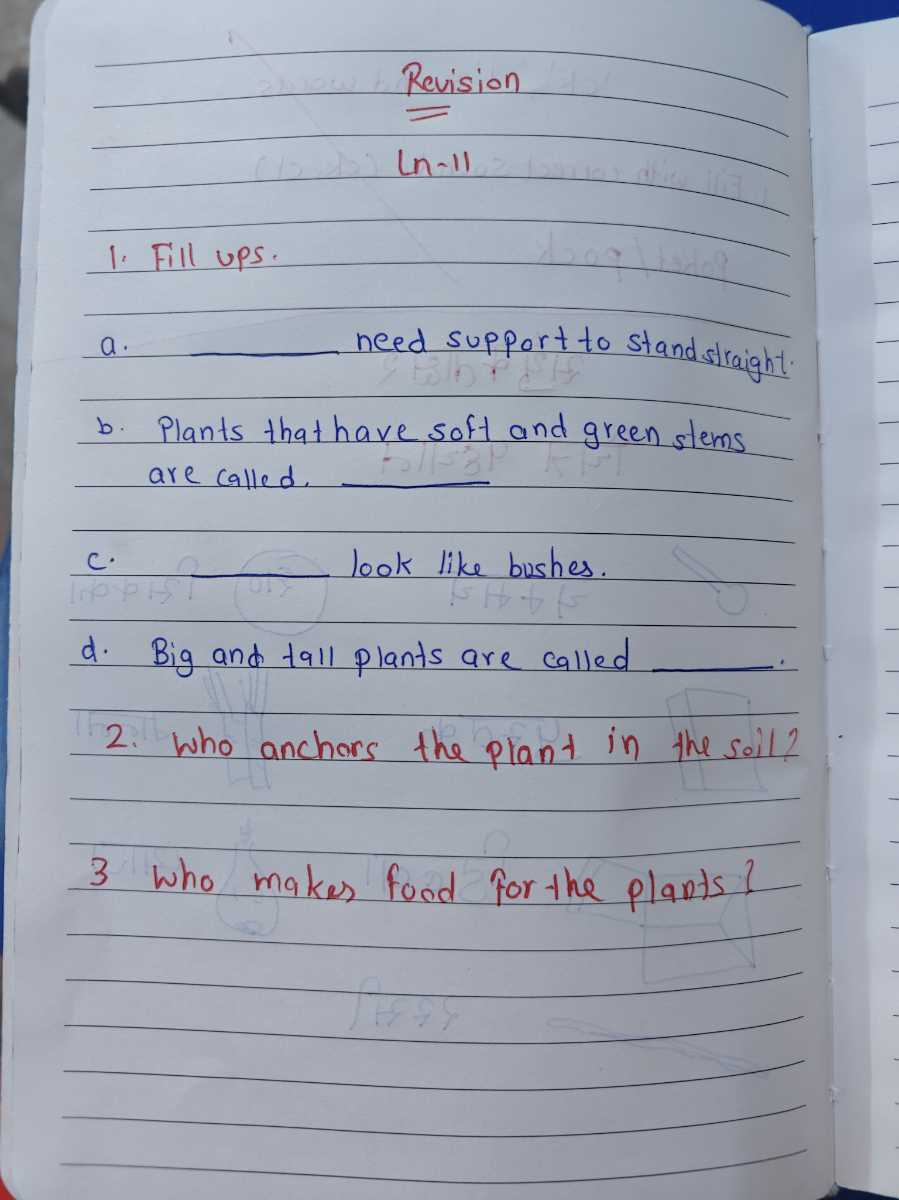 Revision
Ln-11
1. Fill ups.
a. ________ need support to stand straight.
b. Plants that have soft and green stems
are called. ________
c. ________ look like bushes.
d. Big and tall plants are called ________.
2. Who anchors the plant in the soil?
3 Who makes food for the plants?